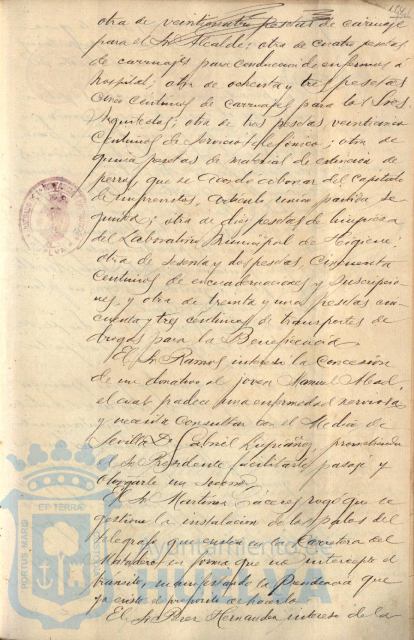 otra de veinticuatro pesetas de carruaje
para el Sr Alcalde; otra de cuatro pesetas
de carruajes para conduccion de enfermos á
hospital; otra de ochenta y tres pesetas
céntimos de carruajes para los Sres
Arquitectos; otra de tres pesetas veinticinco
centimos de servicio telefonico; otra de
quince pesetas de material de extincion de
perros, que se acordó abonar del capitulo
de imprevistos, articulo unico partida se
gunda; otra de diez pesetas de limpieza
del Laboratorio Municipal de Higiene;
otra de sesenta y dos pesetas cincuenta
centimos de encuadernaciones y suscripcio
nes, y otra de treinta y una pesetas cin
cuenta y tres centimos de transportes de
drogas para la Beneficencia
El Sr Ramos interesó la concesión
de un donativo al joven Manuel Abad,
el cual padece una enfermedad nerviosa
y necesita consultar con el Medico de
Sevilla Dn Gabriel prometiendo
el Sr Presidente facilitarle pasaje y
otorgarle un socorro
El Sr Martinez Cáceres rogó que se
gestione la instalacion de los palos del
telegrafo que existen en la Carretera del
Matadero en forma que no intercepte el
transito, manifestando la Presidencia que
ya existe el proposito de hacerlo
El Sr Perez Hernandez intereso de la
PORTUS MARIS ET TERRAE CUSTODIA
Ayuntamiento de
HUELVA